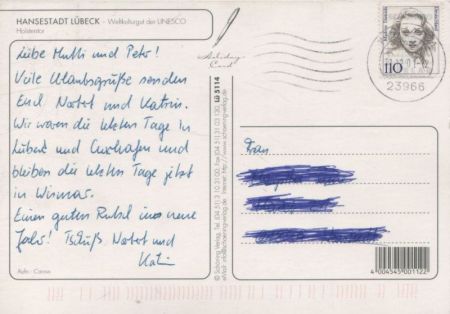 HANSESTADT LÜBECK - Weltkulturgut der UNESCO
Holstentor
Liebe Mutti und Peter!
Viele Urlaubsgrüße senden
Euch Norbert und Katrin.
Wir waren die letzten Tage in
Lübeck und Cuxhafen und
bleiben die letzten Tage jetzt
in Wismar.
Einen guten Rutsch ins neue
Jahr! Tschüß Norbert und
Katrin
Holiday
Card
LÜ 5114
© Schöning Verlag, Tel. (04 51) 3 10 31 00, Fax (04 51) 31 03 130
eMail: info@schoening-verlag.de · Internet: http://www.schoening-verlag.de
110
23966
Frau
4004545001122